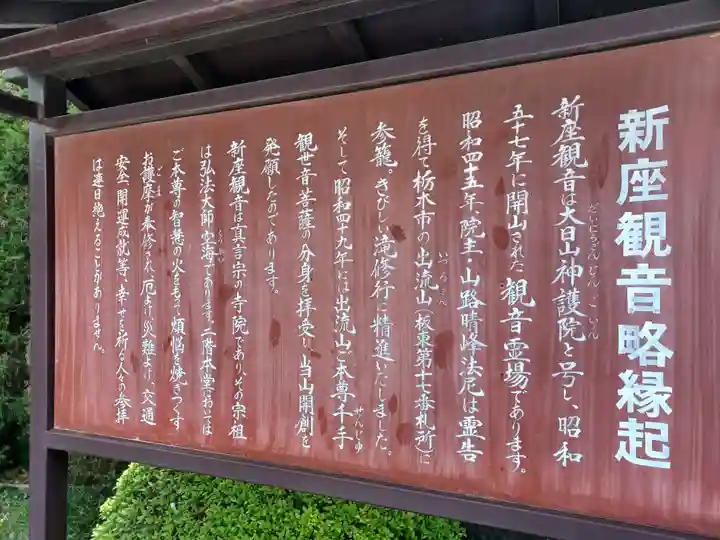 新座観音略縁起
新座観音は大日山神護院と号し、昭和
だいにちざんじんごいん
五十七年に開山された観音霊場であります。
昭和四十五年、院主・山路晴峰法尼は霊告
を得て栃木市の出流山(板東第十七番札所)に
いづるさん
参籠。きびしい滝修行に精進いたしました。
そして昭和四十九年には出流山ご本尊千手
せんじゅ
観世音菩薩の分身を拝受し、当山開創を
発願したのであります。
新座観音は真言宗の寺院であり、その宗祖
は弘法大師・空海であります。二階本堂においては
くうかい
ご本尊の智慧の火をもって煩悩を焼きつくす
お護摩が奉修され、厄よけ、災難よけ、交通
ごま
安全、開運成就等、幸せを祈る人々の参拝
は連日絶えることがありません。